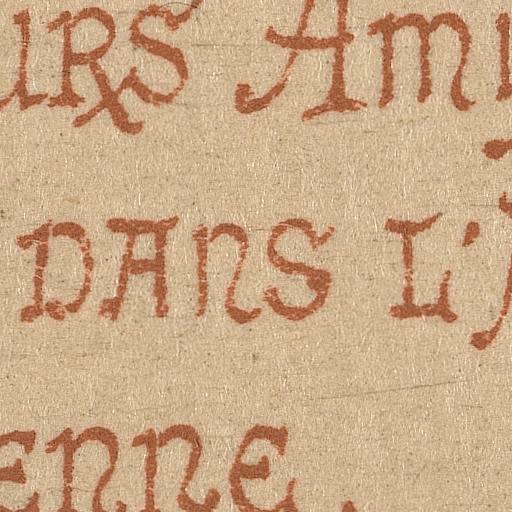 URS AMI
DANS L'A
ENNE.